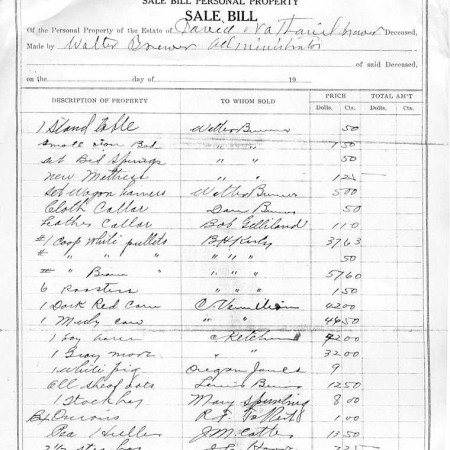 SALE BILL PERSONAL PROPERTY
SALE BILL
Of the Personal Property of the Estate of David Nathaniel Brewer Deceased,
Made by Walter Brewer administrator
of said Deceased,
on the day of 19
DESCRIPTION OF PROPERTY TO WHOM SOLD PRICE TOTAL AM'T
Dolls. Cts. Dolls. Cts.
1 Stand table 50
small iron Bed " " 1 50
set Bed Springs " " 50
new Mattress " " 1 25
set Wagon harness 5 00
Cloth Collar 50
Leather Collar Bob Gilliland 1 10
#1 Coop White pullets B.H. 37 63
# " " " " " 50
57 60
6 Roosters 1 50
1 Dark Red Cow C. Vermillion 42 00
1 cow " " 46 50
1 Bay horse Ketchum 42 00
1 Gray mare " 32 00
1 White pig Oregon Jones 9
All Sheaf oats 12 50
1 Stock hog Mary Spurling 8 00
Bx Onions R.F. 1 00
Pea Huller J.M. 13 50